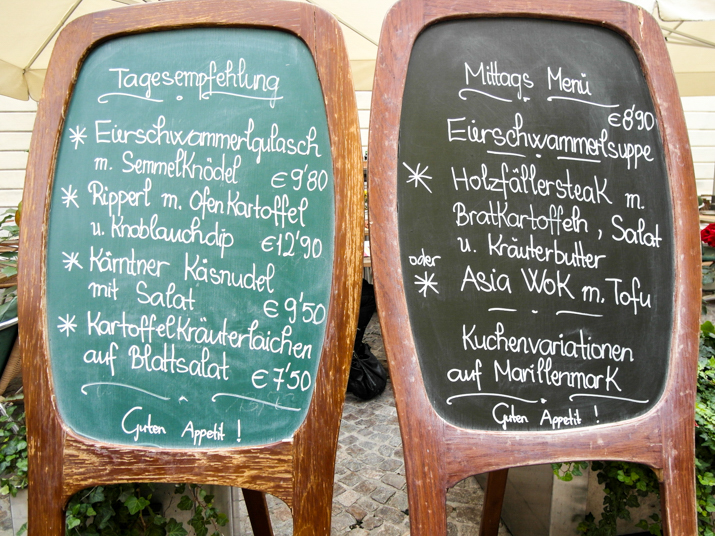 Tagesempfehlung
* Eierschwammerlgulasch
m. Semmelknödel €9'80
* Ripperl m. Ofenkartoffel
u. Knoblauchdip €12'90
* Kärntner Käsnudel
mit Salat €9'50
* Kartoffelkräuterlaichen
auf Blattsalat €7'50
Guten Appetit!
Mittags Menü
€8'90
Eierschwammerlsuppe
* Holzfällersteak m.
Bratkartoffeln, Salat
u. Kräuterbutter
oder
* Asia Wok m. Tofu
Kuchenvariationen
auf Marillenmark
Guten Appetit!